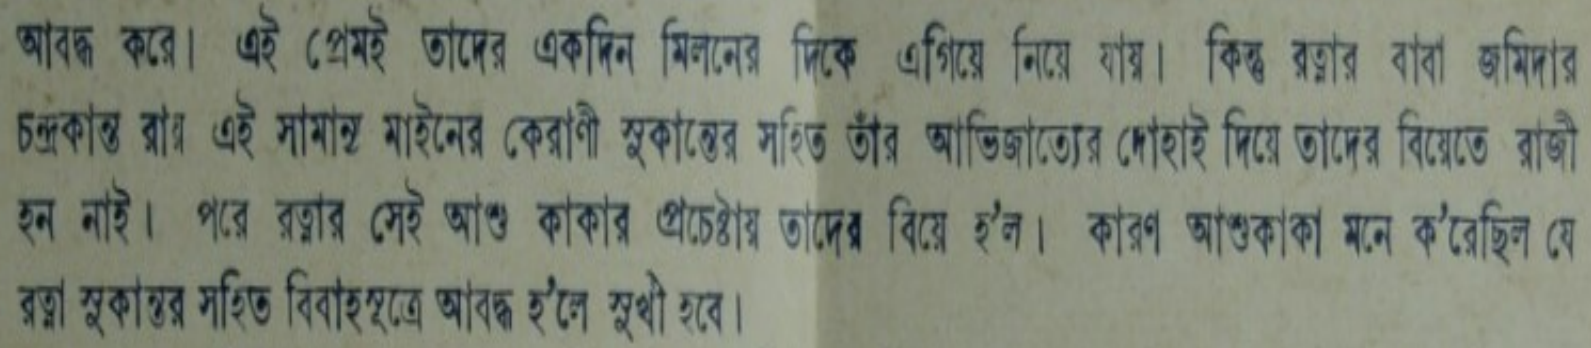 আবদ্ধ করে। এই প্রেমই তাদের একদিন মিলনের দিকে এগিয়ে নিয়ে যায়। কিন্তু রত্নার বাবা জমিদার
চন্দ্রকান্ত রায় এই সামান্য মাইনের কেরাণী সুকান্তের সহিত তাঁর আভিজাত্যের দোহাই দিয়ে তাদের বিয়েতে রাজী
হন নাই। পরে রত্নার সেই আশু কাকার প্রচেষ্টায় তাদের বিয়ে হ'ল। কারণ আশুকাকা মনে ক'রেছিল যে
রত্না সুকান্তর সহিত বিবাহসূত্রে আবদ্ধ হ'লে সুখী হবে।